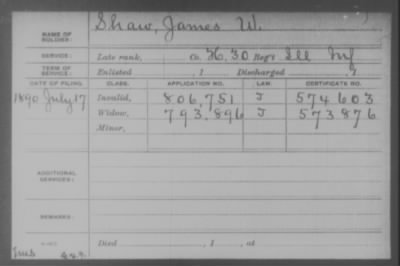 NAME OF SOLDIER: Shaw, James W.
SERVICE: Late rank, Co. H, 30 Reg't Ill Inf
TERM OF SERVICE: Enlisted , 1 Discharged , 1
DATE OF FILING. CLASS. APPLICATION NO. LAW. CERTIFICATE NO.
1890 July 17 Invalid, 806,751 J 574603
Widow, 793,896 J 573876
Minor,
ADDITIONAL SERVICES:
REMARKS:
Died , 1 , at